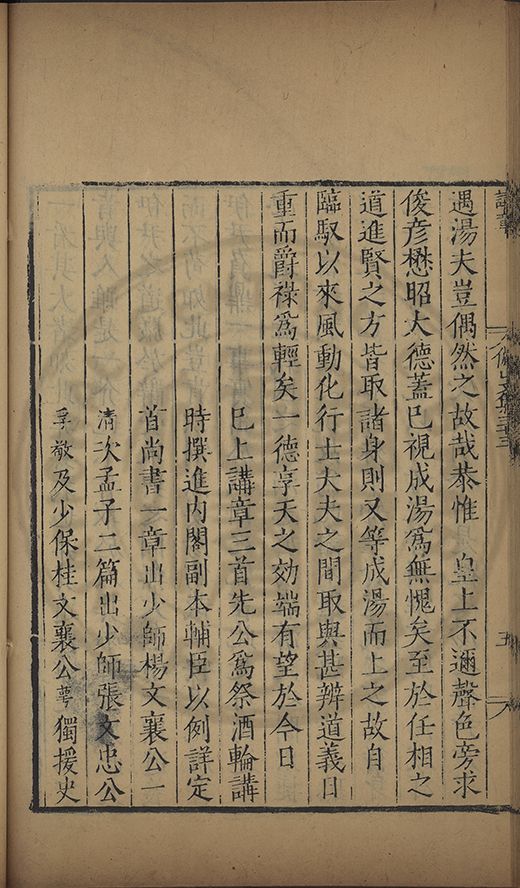 遇湯夫豈偶然之故哉恭惟　皇上不邇聲色旁求
俊彥懋昭大德蓋已視成湯爲無愧矣至於任相之
道進賢之方皆取諸身則又等成湯而上之故自
臨馭以來風動化行士大夫之間取與甚辨道義日
重而爵祿爲輕矣一德享天之効端有望於今日
已上講章三首先公爲祭酒輪講
時撰進內閣副本輔臣以例詳定
首尚書一章出少師楊文襄公一
清次孟子二篇出少師張文忠公
孚敬及少保桂文襄公萼獨援史